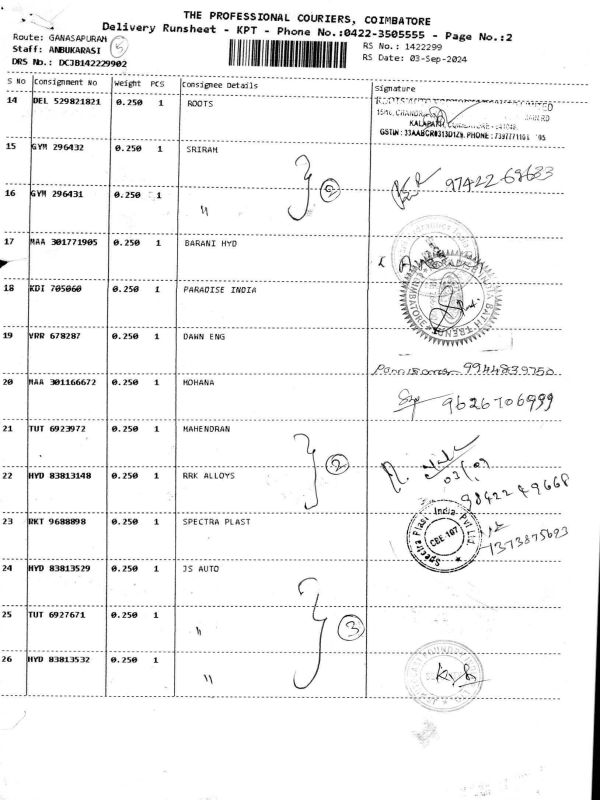 THE PROFESSIONAL COURIERS, COIMBATORE
Delivery Runsheet - KPT - Phone No.:0422-3505555 - Page No.:2
Route: GANASAPURAM
Staff: ANBUKARASI 5
DRS No.: DCJB142229902
RS No.: 1422299
RS Date: 03-Sep-2024
S No Consignment No Weight PCS Consignee Details Signature
14 DEL 529821821 0.250 1 ROOTS
KALAPATTI, COIMBATORE - 641048.
15 GYM 296432 0.250 1 SRIRAM
16 GYM 296431 0.250 1 "
97422-68633
17 MAA 301771905 0.250 1 BARANI HYD
18 KDI 705060 0.250 1 PARADISE INDIA
19 VRR 678287 0.250 1 DAWN ENG
9944839750
20 MAA 301166672 0.250 1 MOHANA
9626706999
21 TUT 6923972 0.250 1 MAHENDRAN
2
22 HYD 83813148 0.250 1 RRK ALLOYS
03/09
98422 49668
23 RKT 9688898 0.250 1 SPECTRA PLAST
Spectra Plast India Pvt Ltd.
CBE 107
24 HYD 83813529 0.250 1 JS AUTO
25 TUT 6927671 0.250 1 "
3
26 HYD 83813532 0.250 1 "